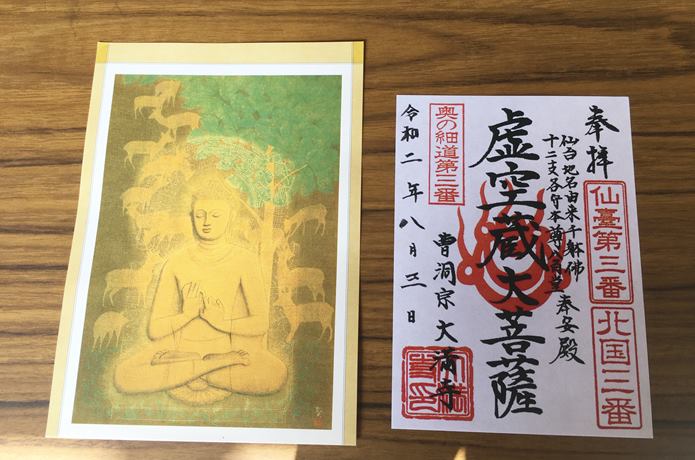 奉拝
仙臺第三番
北国三番
仙台地名由来千躰佛
十二支各守本尊八角堂
奉安殿
虚空蔵大菩薩
奥の細道第三番
曹洞宗大満寺
令和二年八月三日